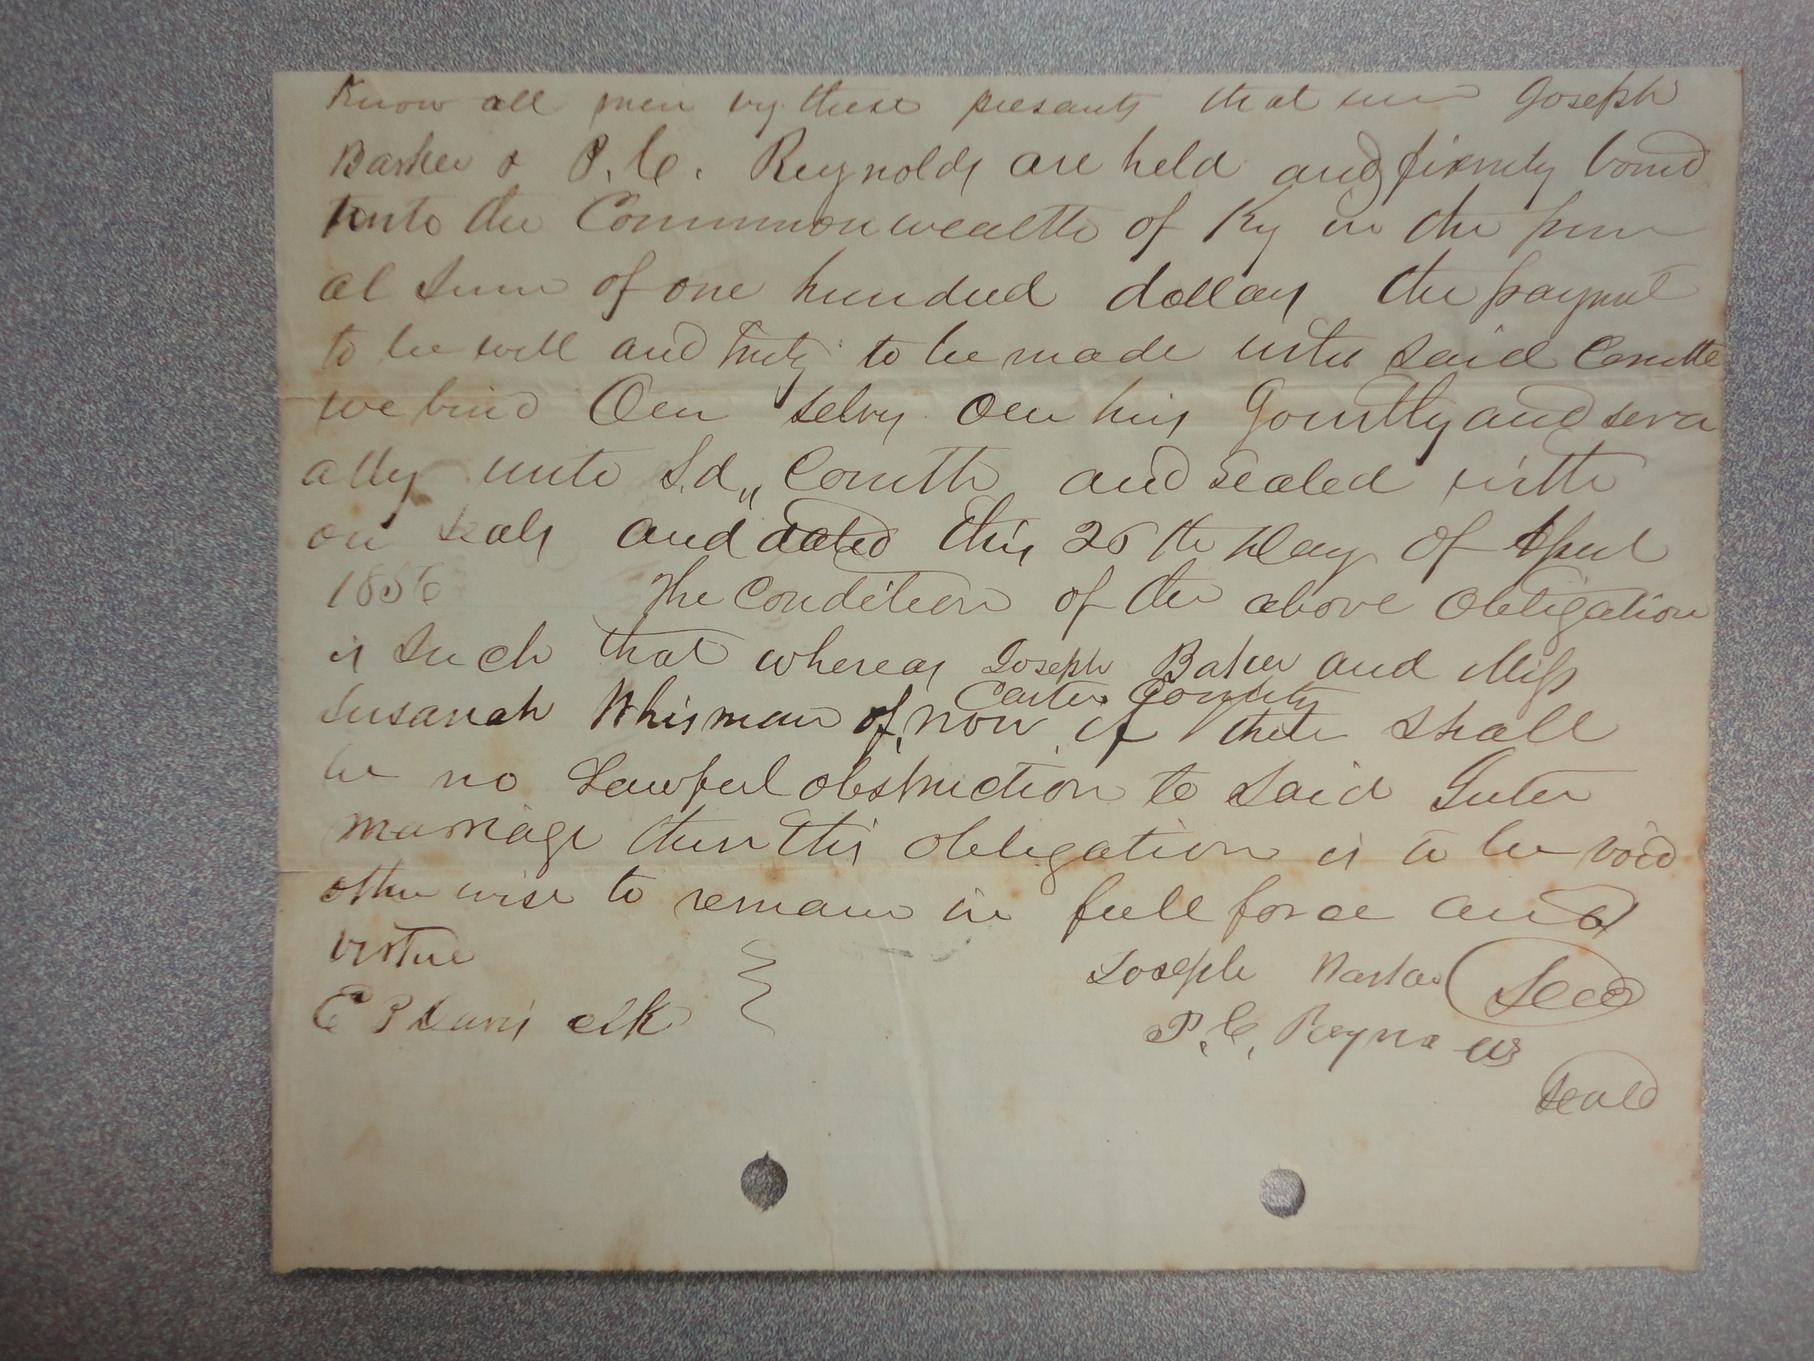 Know all men by these presants that we Joseph
Barker & P. C. Reynolds are held and firmly bound
unto the Commonwealth of Ky in the pen
al Sum of one hundred dollars the paymt
to be well and truly to be made unto said Comtte
we bind Our selvs our hirs Jointly and sever
ally unto S.d,, Comtth and sealed with
our Seals and dated this 26th Day of Aprul
1856 The Condition of the above obligation
is Such that whereas Joseph Baker and Miss
Carter County
Susanah Whisman of, now if there shall
be no Lawful obstruction to Said Inter
marriage then this obligation is to be void
other wise to remain in full force and
virtue Joseph Barker Seal
E P Davis clk P. C. Reynolds
Seald